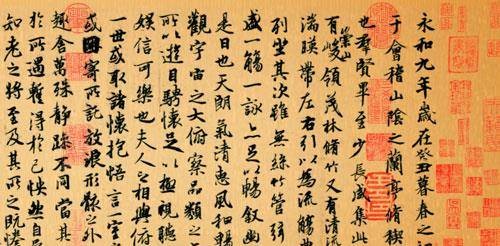 永和九年歲在癸丑暮春之
于會稽山陰之蘭亭脩稧
也羣賢畢至少長咸集此
有崇山峻領茂林脩竹又有清流
湍暎帶左右引以為流觴曲
列坐其次雖無絲竹管
盛一觴一詠亦足以暢敘幽
是日也天朗氣清惠風和暢
觀宇宙之大俯察品類之
所以遊目騁懷足以極視聽
娛信可樂也夫人之相與俯
一世或取諸懷抱悟言一室
或因寄所託放浪形骸之外
趣舍萬殊靜躁不同當其
於所遇蹔得於己怏然自
知老之將至及其所之既惓